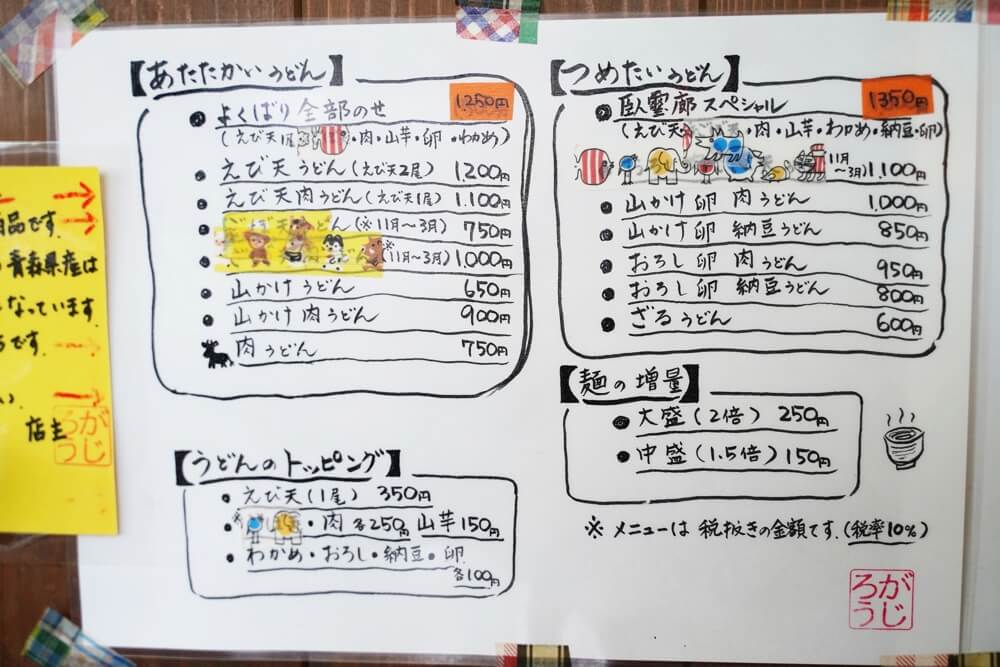 【あたたかいうどん】
よくばり全部のせ 1250円
(えび天1尾・肉・山芋・卵・わかめ)
えび天うどん(えび天2尾) 1,200円
えび天肉うどん(えび天1尾) 1,100円
うどん(※11月～3月) 750円
(※11月～3月) 1,000円
山かけうどん 650円
山かけ肉うどん 900円
肉うどん 750円
【うどんのトッピング】
えび天(1尾) 350円
・肉 各250円 山芋150円
わかめ・おろし・納豆・卵
各100円
【つめたいうどん】
臥雲廊スペシャル 1350円
(えび天・肉・山芋・わかめ・納豆・卵)
11月～3月) 1,100円
山かけ卵肉うどん 1,000円
山かけ卵納豆うどん 850円
おろし卵肉うどん 950円
おろし卵納豆うどん 800円
ざるうどん 600円
【麺の増量】
大盛(2倍) 250円
中盛(1.5倍) 150円
※メニューは税抜きの金額です.(税率10%)
ろがうじ
品です.
青森県産は
なっています.
です.
店主
ろがうじ